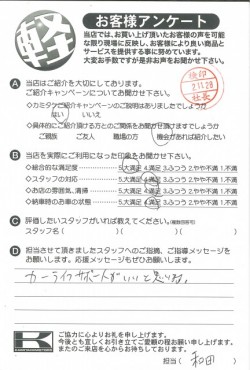 軽
お客様アンケート
当店では、お買い上げ頂いたお客様の声を可能な
限り現場に反映し、お客様により良い商品と
サービスを提供する事に努めています。
大変お手数ですが是非お声をお聞かせ下さい。
検印
2.11.28
社長
A 当店はご紹介を大切にしております。
ご紹介キャンペーンについてお聞かせ下さい。
◇カミタケご紹介キャンペーンのご説明はありましたでしょうか
はい いいえ
◇具体的にご紹介頂ける方とのご関係をお聞かせ頂けますでしょうか
ご親族 ご友人 職場の方 機会があれば紹介したい
B 当店を実際にご利用になった印象をお聞かせ下さい。
◇総合的な満足度 5.大満足 4.満足 3.ふつう 2.やや不満 1.不満
◇スタッフの対応 5.大満足 4.満足 3.ふつう 2.やや不満 1.不満
◇お店の雰囲気、清掃 5.大満足 4.満足 3.ふつう 2.やや不満 1.不満
◇納車時のお車の状態 5.大満足 4.満足 3.ふつう 2.やや不満 1.不満
C 評価したいスタッフがいれば教えてください。(複数回答可)
スタッフ名( )( )( )
D 担当させて頂きましたスタッフへのご指摘、ご指導メッセージを
お願いします。応援メッセージもぜひ、お願い致します。
カーライフサポートがいいと思いました。
K
ご協力に心よりお礼を申し上げます。
今後とも宜しくお引き立てご愛顧の程お願い申し上げます。
またのご来店を心からお待ちしております。
担当( 和田 )